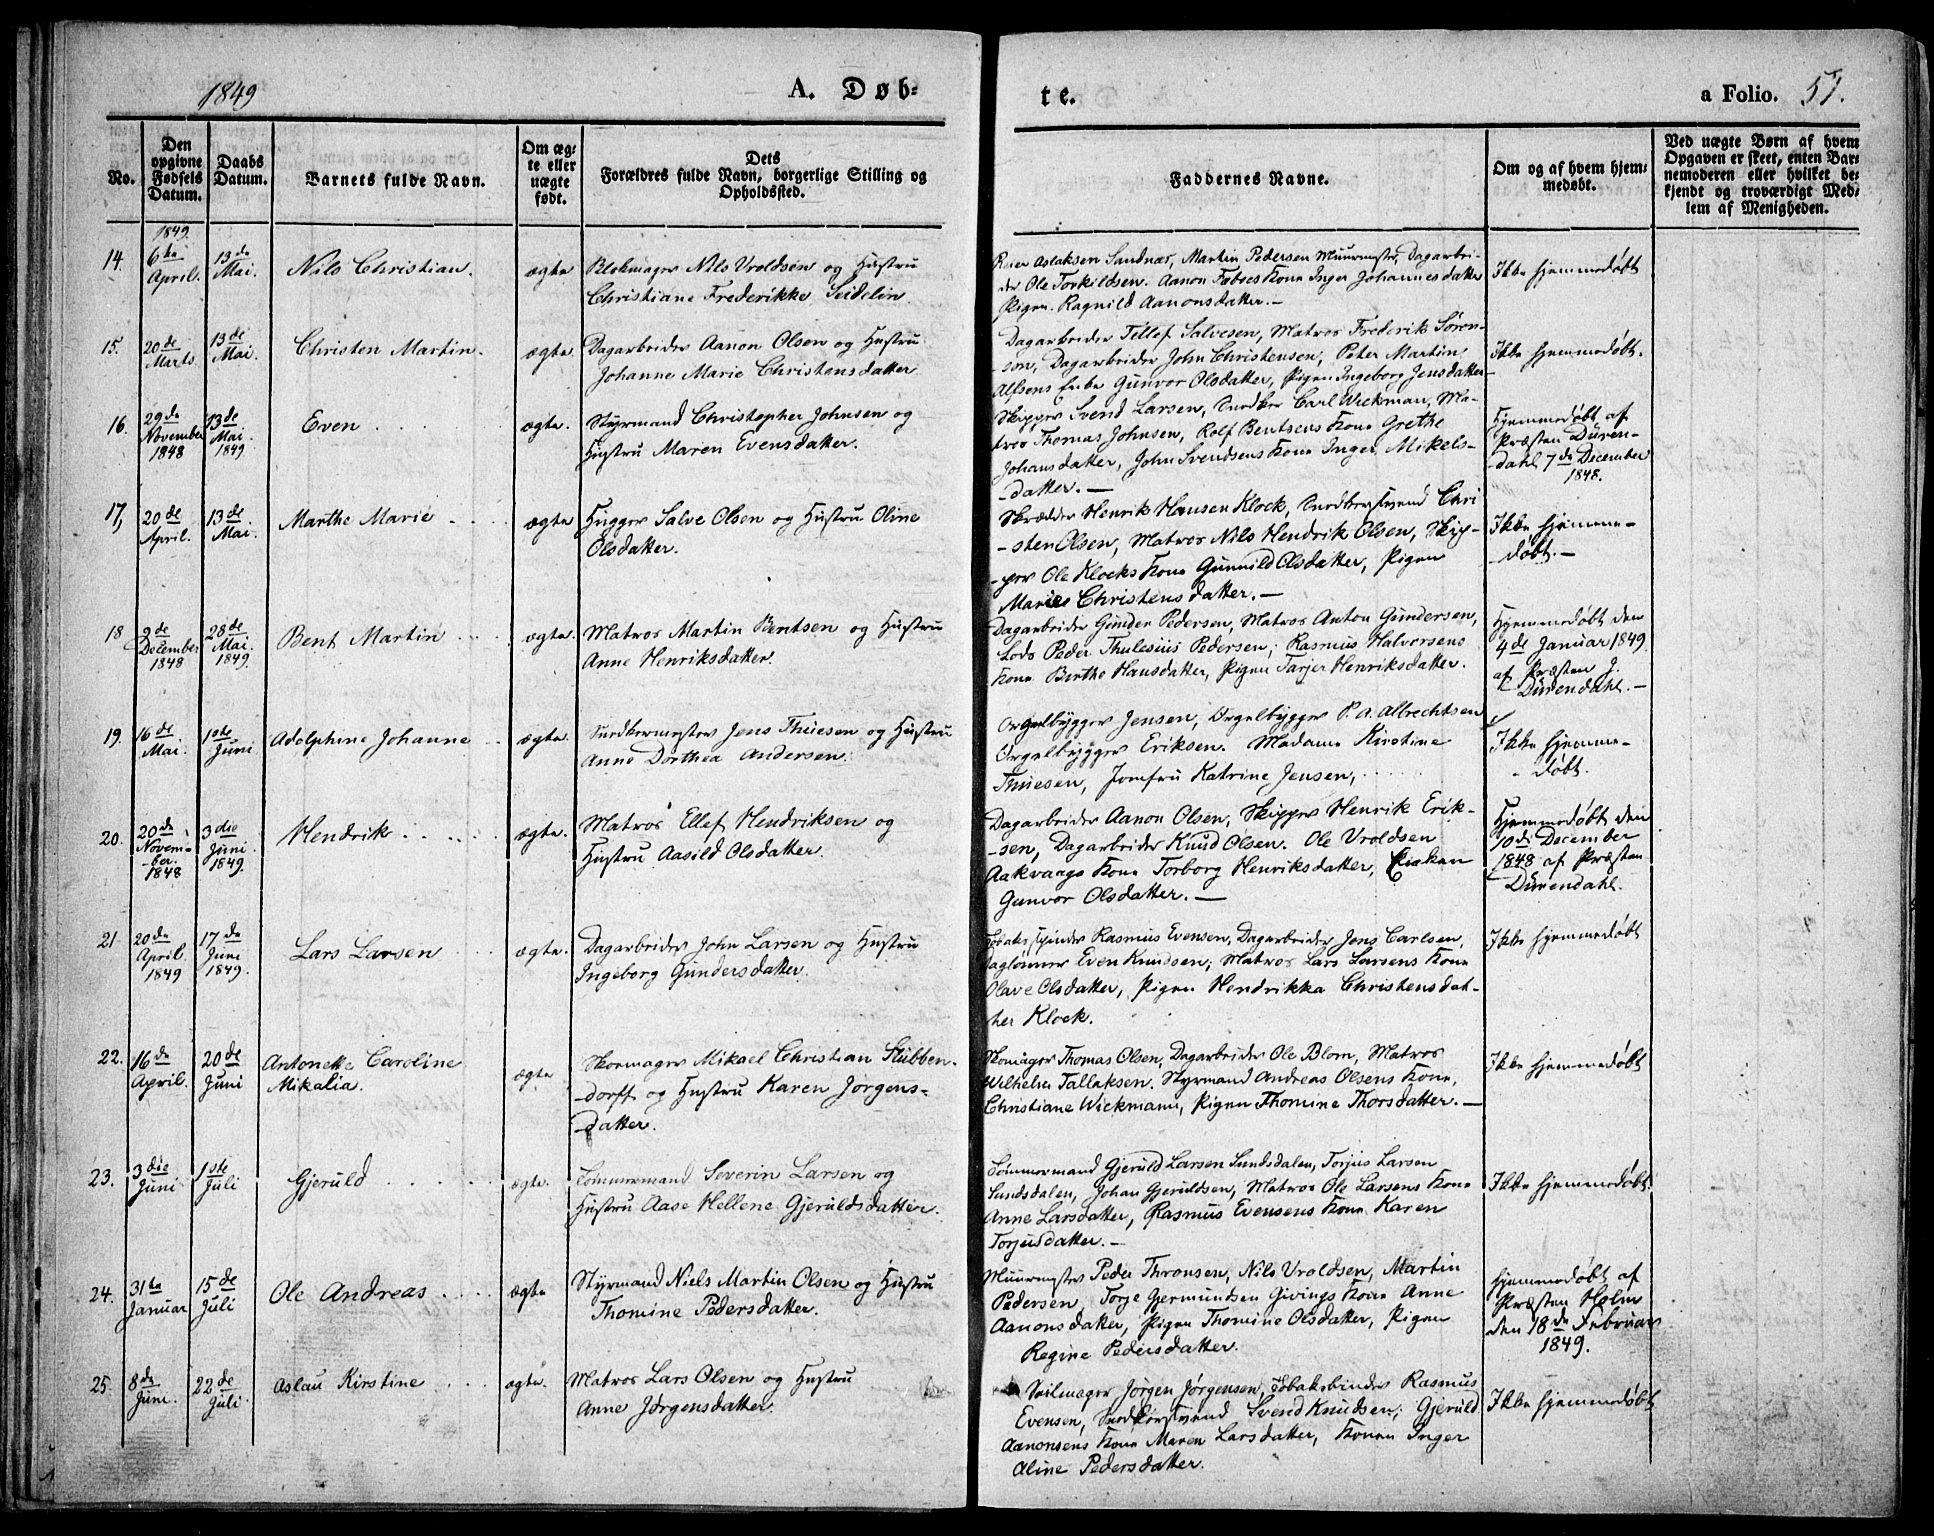 1849
A. Døb-
te.
a Folio. 51.
No.
Den opgivne Fødsels Datum.
Daabs Datum.
Barnets fulde Navn.
Om ægte eller uægte født.
Dets
Forældres fulde Navn, borgerlige Stilling og
Opholdssted.
Faddernes Navne.
Om og af hvem hjemmedøbt.
Ved uægte Børn af hvem
Opgaven er skeet, enten Bar-
nemoderen eller hvilket be-
kjendt og troværdigt Med-
lem af Menigheden.
1849.
14. 6te April. 13de Mai. Nils Christian. ægte.
Blokmager Nils Vroldsen og Hustru
Christiane Frederikke Seidelin.
Reier Aslaksen Sandnæs, Martin Pedersen Muurmester, Dagarbei-
der Ole Torkildsen. Aanon Fobroes Kone Inger Johannesdatter
Pigen Ragnild Aanonsdatter. —
Ikke hjemmedøbt
15. 20de Marts 13de Mai. Christen Martin. ægte.
Dagarbeider Aanon Olsen og Hustru
Johanne Marie Christensdatter
Dagarbeider Tellef Salvesen, Matros Frederik Søren-
-sen, Dagarbeider John Christensen, Peter Martin
Alfsens Enke Gunvor Olsdatter, Pigen Ingeborg Jensdatter
Ikke hjemmedøbt.
16. 29de November 1848 13de Mai. 1849. Even . . . . ægte.
Styrmand Christopher Johnsen og
Hustru Maren Evensdatter.
Skipper Svend Larsen, Snedker Carl Wickman, Ma-
tros Thomas Johnsen, Rolf Bentsens Kone Grethe
Johansdatter, John Svendsens Kone Inger Mikels-
datter. —
Hjemmedøbt af
Præsten Düren-
dahl 7de December
1848.
17, 20de April. 13de Mai. Marthe Marie ægte
Hugger Salve Olsen og Hustru Oline
Olsdatter.
Skrædder Henrik Hansen Klock, Snedkersvend Chri
-sten Olsen, Matros Nils Hendrik Olsen, Skip-
-per Ole Klocks Kone Gunnild Olsdatter, Pigen
Marie Christensdatter. —
Ikke hjemme-
døbt. —
18 9de December 1848 28de Mai. 1849. Bent Martin ægte.
Matros Martin Bentsen og Hustru
Anne Henriksdatter.
Dagarbeider Gunder Pedersen, Matros Anton Gundersen,
Lods Peder Thulesius Pedersen; Rasmus Halvorsens
Kone Berthe Hansdatter, Pigen Tarjer Henriksdatter.
Hjemmedøbt den
4de Januar 1849
af Præsten J.
Dürendahl. —
19. 16de Mai. 1ste Juni Adolphine Johanne ægte.
Snedkermester Jens Thuesen og Hustru
Anne Dorthea Andersen.
Orgelbygger Jensen, Orgelbygger P. A. Albrechtsen
Orgelbygger Eriksen. Madame Kirstine
Thuesen, Jomfru Katrine Jensen,
Ikke hjemme-
- døbt.
20. 20de Novem-ber. 1848 3die Juni 1849. Hendrik ægte.
Matros Ellef Hendriksen og
Hustru Aasild Olsdatter.
Dagarbeider Aanon Olsen, Skipper Henrik Erik-
-sen, Dagarbeider Knud Olsen. Ole Vroldsen
Aakvaags Kone Torborg Henriksdatter,
Gunvor Olsdatter. —
Hjemmedøbt den
10de December
1848 af Præsten
Dürendahl.
21 20de April 1849 17de Juni 1849. Lars Larsen ægte.
Dagarbeider John Larsen og Hustru
Ingeborg Gundersdatter.
Tobakspinder Rasmus Evensen, Dagarbeider Jens Carlsen,
Daglønner Even Knudsen; Matros Lars Larsens Kone
Olave Olsdatter, Pigen Hendrikka Christensdat-
ter Klock.
Ikke hjemmedøbt
22. 16de April. 20de Juni Antonette Caroline
Mikalia. ægte
Skomager Mikael Christian Stubben-
-dorff og Hustru Karen Jørgens-
-datter.
Skomager Thomas Olsen, Dagarbeider Ole Blom, Matros
Wilhelm Tallaksen. Styrmand Andreas Olsens Kone,
Christiane Wickmann, Pigen Thomine Thorsdatter. —
Ikke hjemmedøbt
23. 3die Juni 1ste Juli Gjeruld ægte.
Tømmermand Severin Larsen og
Hustru Aase Hellene Gjeruldsdatter.
Tømmermand Gjeruld Larsen Sundsdalen, Torjus Larsen
Sundsdalen, Johan Gjeruldsen, Matros Ole Larsens Kone
Anne Larsdatter, Rasmus Evensens Kone Karen
Torjusdatter. —
Ikke hjemmedøbt.
24. 31te Januar 15de Juli Ole Andreas ægte
Styrmand Niels Martin Olsen og Hustru
Thomine Pedersdatter.
Muurmester Peder Thronsen, Nils Vroldsen, Martin
Pedersen, Torje Gjermundsen Givings Kone Anne
Aanonsdatter, Pigen Thomine Olsdatter, Pigen
Regine Pedersdatter.
Hjemmedøbt af
Præsten Holm
den 18de Februar
1849.
25. 8de Juni. 22de Juli Aslau Kirstine ægte.
Matros Lars Olsen og Hustru
Anne Jørgensdatter.
Seilmager Jørgen Jørgensen, Tobaksbinder Rasmus
Evensen, Snedkersvend Svend Knudsen; Gjeruld
Aanonsens Kone Maren Larsdatter, Konen Inger
Aline Pedersdatter.
Ikke hjemmedøbt